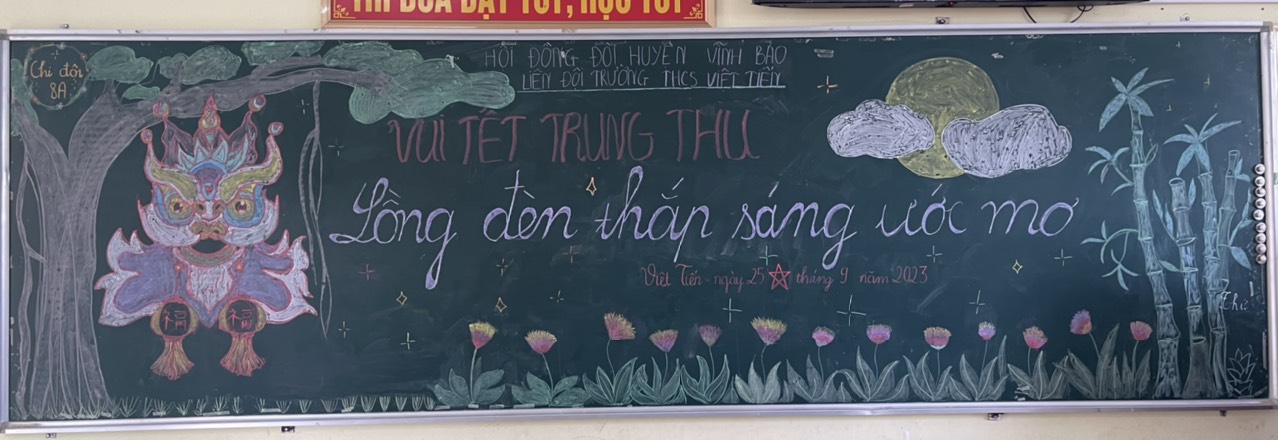 THI ĐUA DẠY TỐT, HỌC TỐT
Chi đội
8A
HỘI ĐỒNG ĐỘI HUYỆN VĨNH BẢO
LIÊN ĐỘI TRƯỜNG THCS VIỆT TIẾN
VUI TẾT TRUNG THU
Lồng đèn thắp sáng ước mơ
Việt Tiến - ngày 25 tháng 9 năm 2023
福 福
Thứ